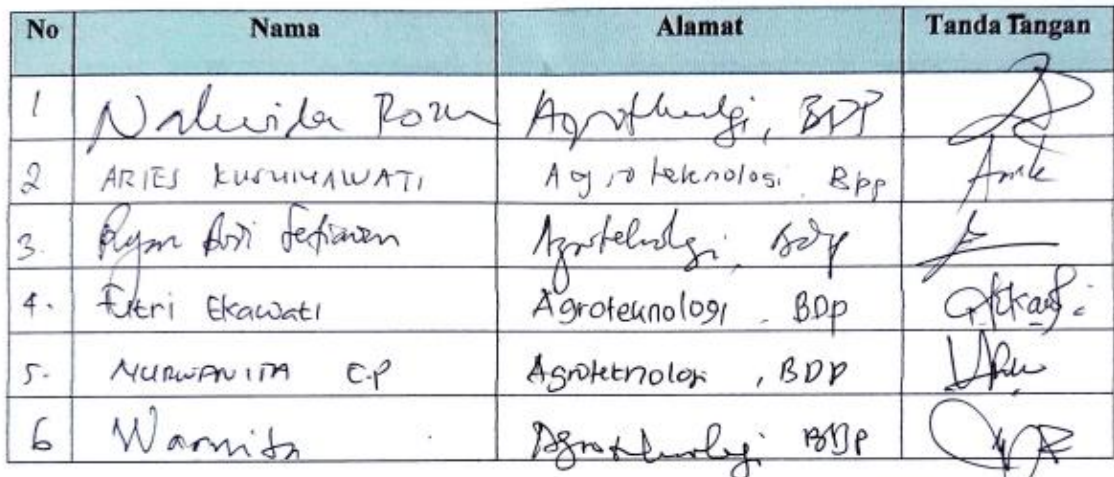 No Nama Alamat Tanda Tangan
1 Nalwida Rozen Agroteknologi, BDP
2 ARIES KUSUMAWATI Agroteknologi BDP
3. Ryan Budi Setiawan Agroteknologi, BDP
4. Fitri Ekawati Agroteknologi BDP
5. NURWANITA E.P Agroteknologi, BDP
6 Warnita Agroteknologi BDP